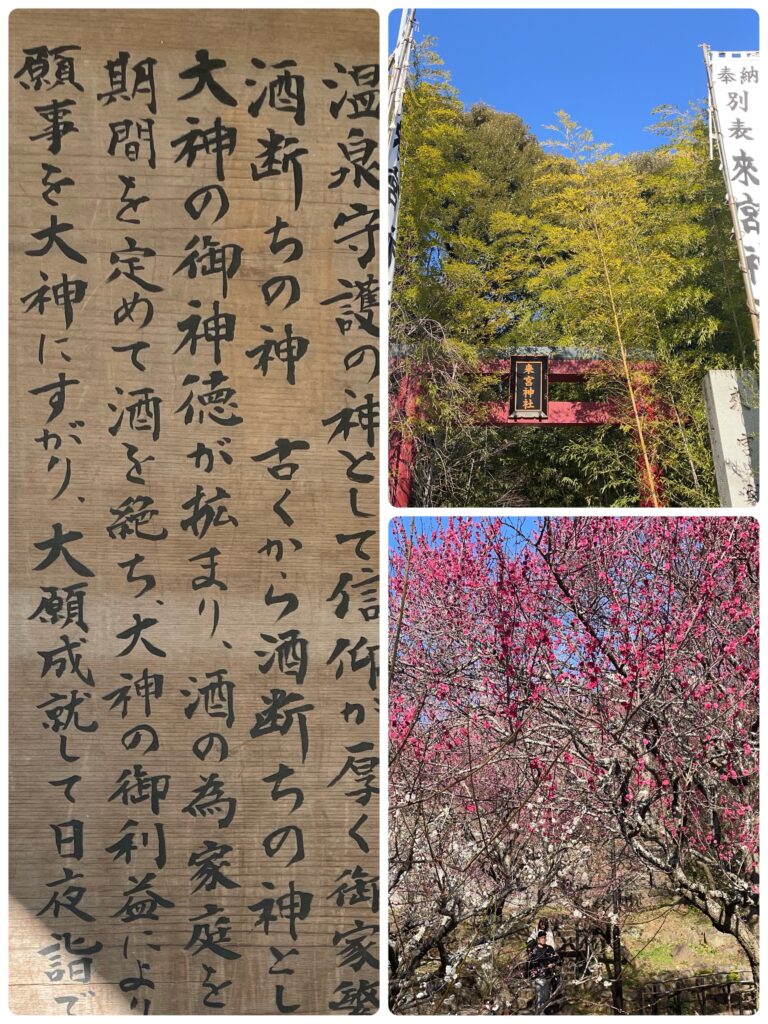 温泉守護の神として信仰が厚く御家繁
酒断ちの神　古くから酒断ちの神とし
大神の御神徳が拡まり、酒の為家庭を
期間を定めて酒を絶ち、大神の御利益により
願事を大神にすがり、大願成就して日夜詣で
奉納
別表來宮神
來宮神社